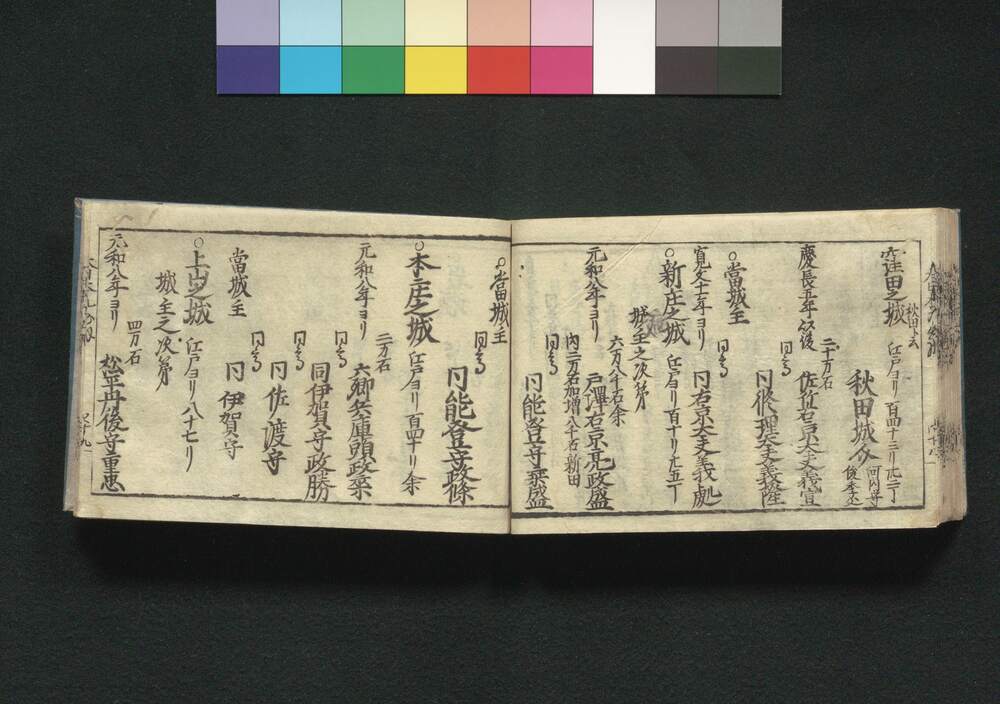 窪田之城 秋田ト云 江戸ヨリ百四十三リ
秋田城介
慶長五年以後
二十万石
佐竹右京大夫義宣
同修理大夫義隆
○當城主
同右京大夫義処
寛文十一年ヨリ
○新庄之城 江戸ヨリ百十リ
城主之次第
元和八年ヨリ
六万八千石余
戸澤右京亮政盛
内二万石加増八千石新田
同能登守
○當城主
同能登守
○本庄之城 江戸ヨリ百四十リ余
元和八年ヨリ
二万石
六郷兵庫頭政乗
同伊賀守政勝
同佐渡守
當城主
同伊賀守
○上山之城 江戸ヨリ八十七リ
城主之次第
元和八年ヨリ
四万石
松平丹後守重忠